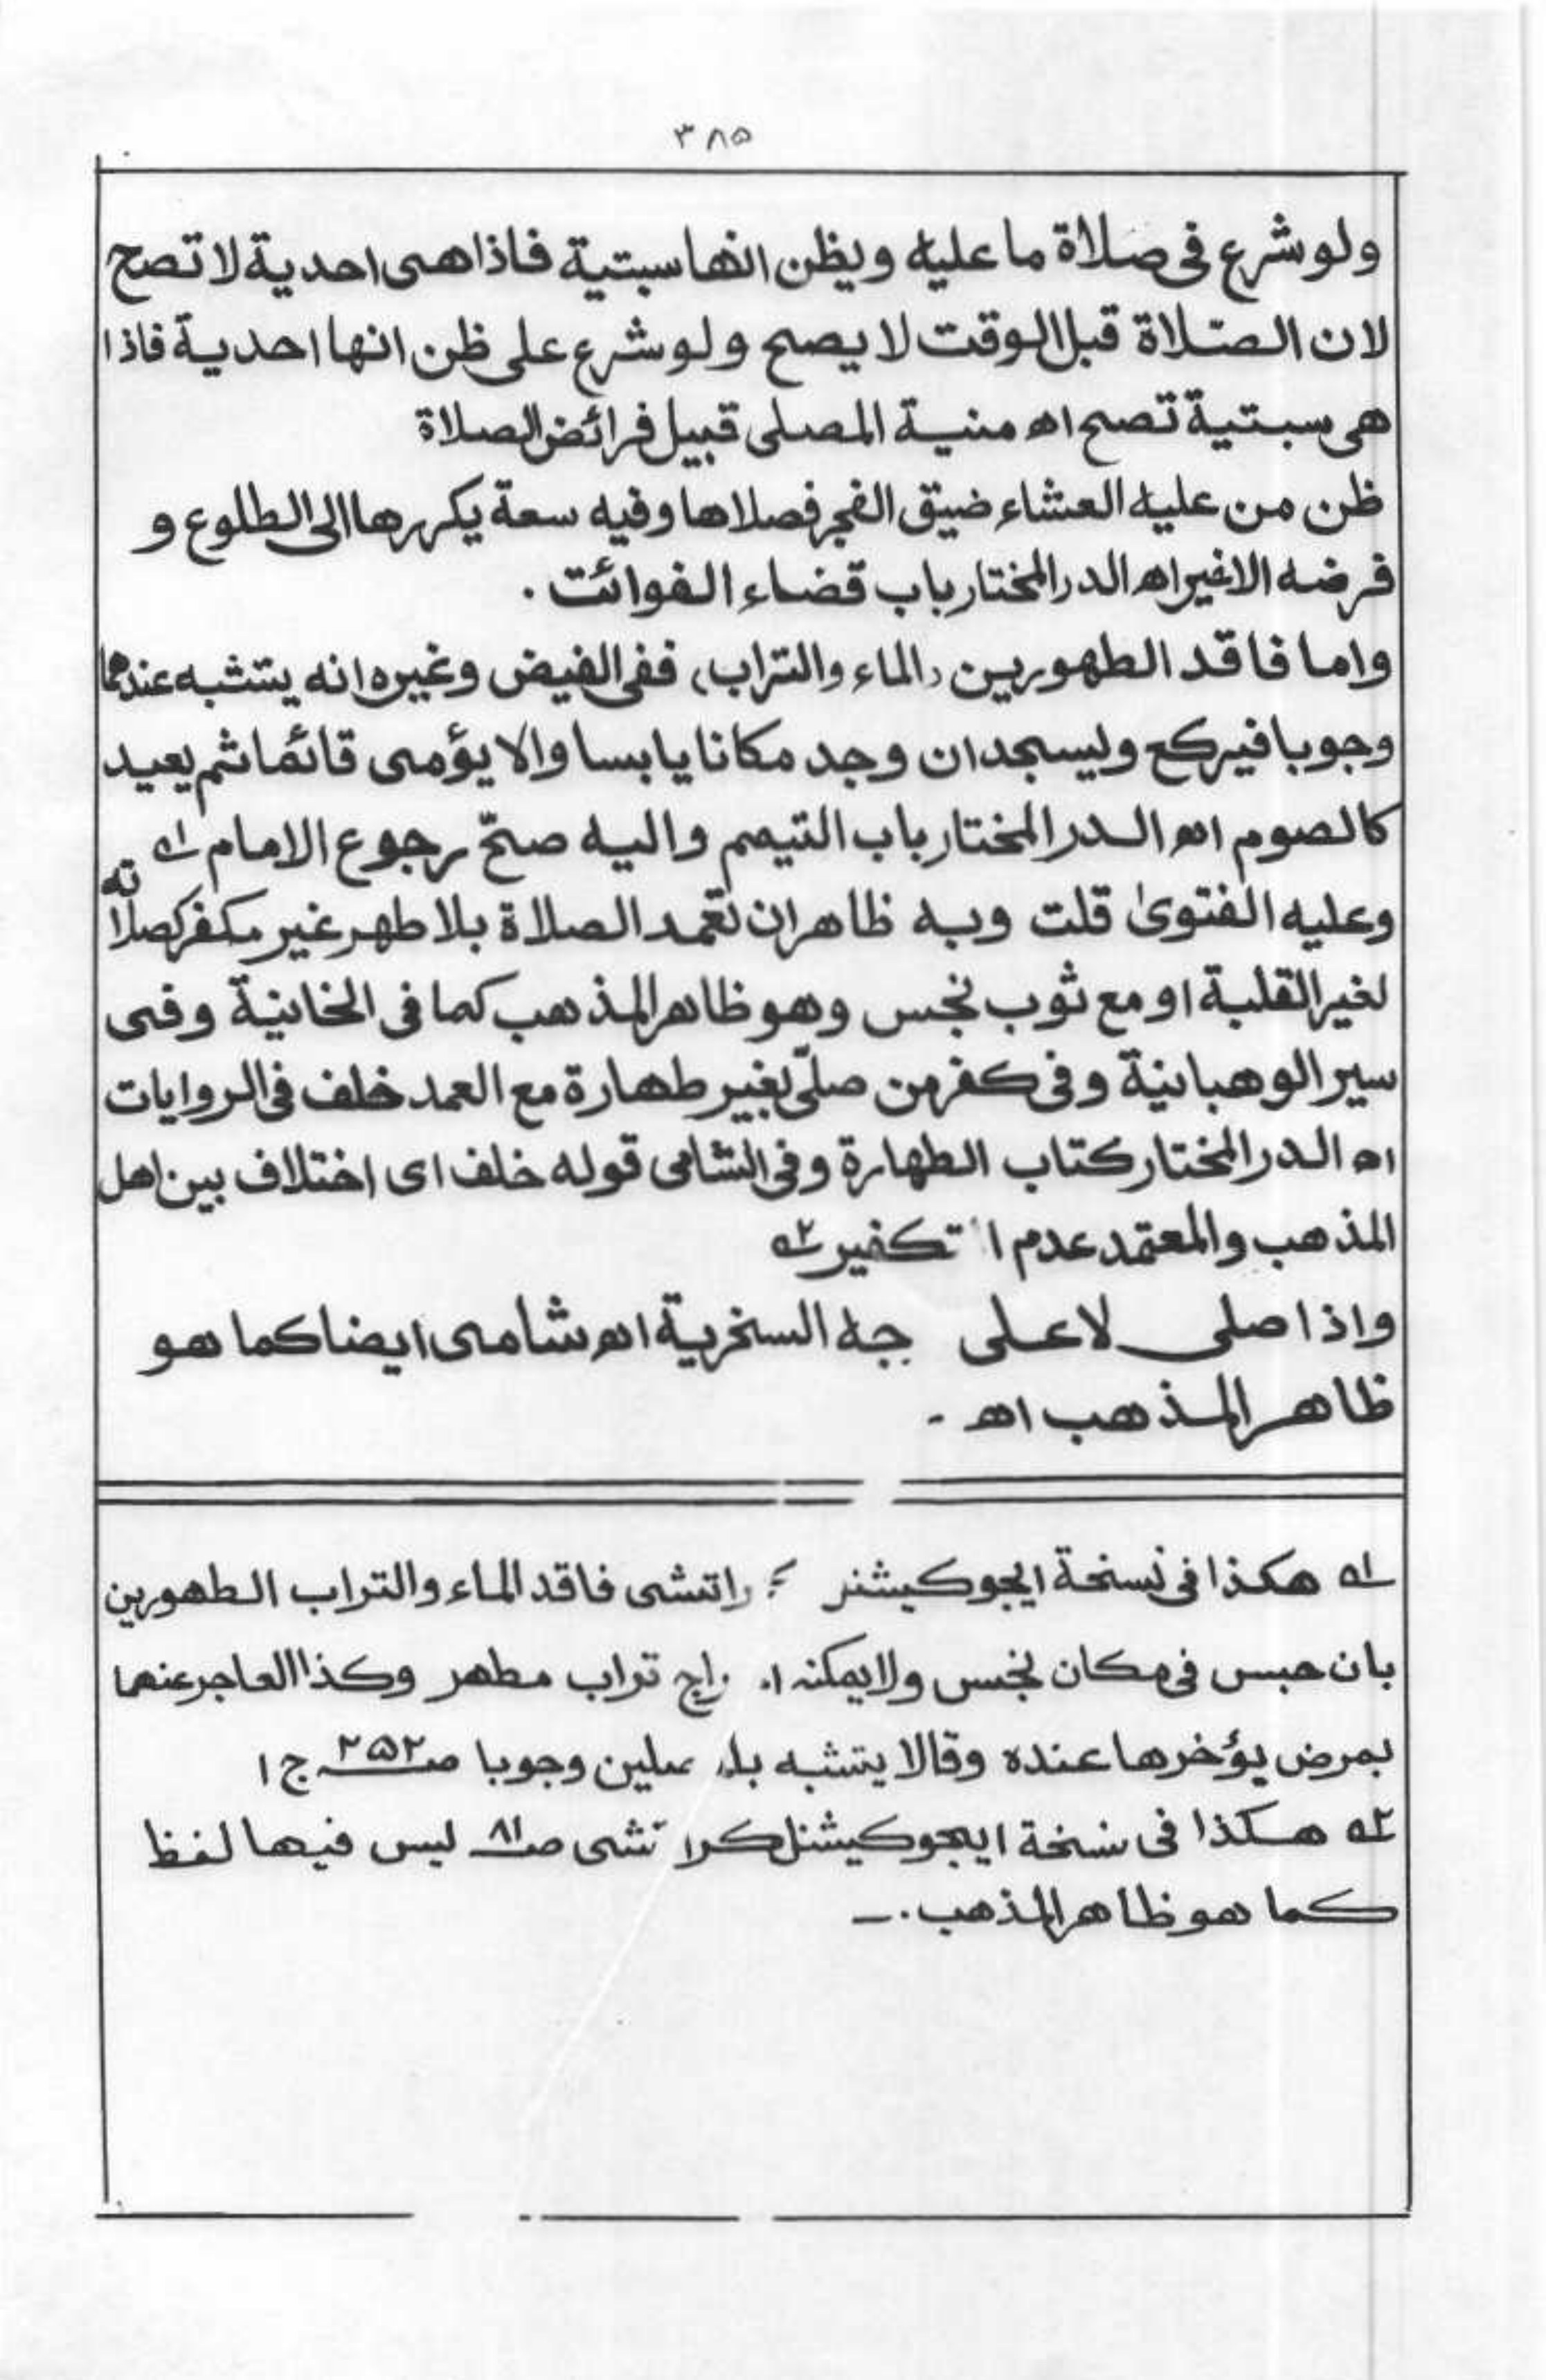 ۳۸۵
ولو شرع فى صلاة ما عليه ويظن انها سبتية فاذا هى احدية لا تصح
لان الصّلاة قبل الوقت لا يصح ولو شرع على ظن انها احدية فاذا
هى سبتية تصح اه منية المصلى قبيل فرائض الصلاة
ظن من عليه العشاء ضيق الفجر فصلاها وفيه سعة يكررها الى الطلوع و
فرضه الاخير اه الدر المختار باب قضاء الفوائت .
واما فاقد الطهورين (الماء والتراب) ففى الفيض وغيره انه يتشبه عندهما
وجوبا فيركع وليسجد ان وجد مكانا يابسا والا يؤمى قائما ثم يعيد
كالصوم اه الدر المختار باب التيمم واليه صحّ رجوع الامام ۱ه
وعليه الفتوىٰ قلت وبه ظاهر ان تعمد الصلاة بلا طهر غير مكفر كصلاته
لغير القبلة او مع ثوب نجس وهو ظاهر المذهب كما فى الخانية وفى
سير الوهبانية وفى كفر من صلّى بغير طهارة مع العمد خلف فى الروايات
اه الدر المختار كتاب الطهارة وفى الشامى قوله خلف اى اختلاف بين اهل
المذهب والمعتمد عدم ا تكفير ۲ه
واذا صلى لا على جه السخرية اه شامى ايضا كما هو
ظاهر المذهب اه -
۱ه هكذا فى نسخة ايجوكيشنر راتشى فاقد الماء والتراب الطهورين
بان حبس فى مكان نجس ولا يمكنه ا راج تراب مطهر وكذا العاجر عنهما
بمرض يؤخرها عنده وقالا يتشبه با ملين وجوبا صـ۲۵۲ ج ۱
۲ه هكذا فى نسخة ايجوكيشنل كرا تشى صـ۸۱ ليس فيها لفظ
كما هو ظاهر المذهب . —